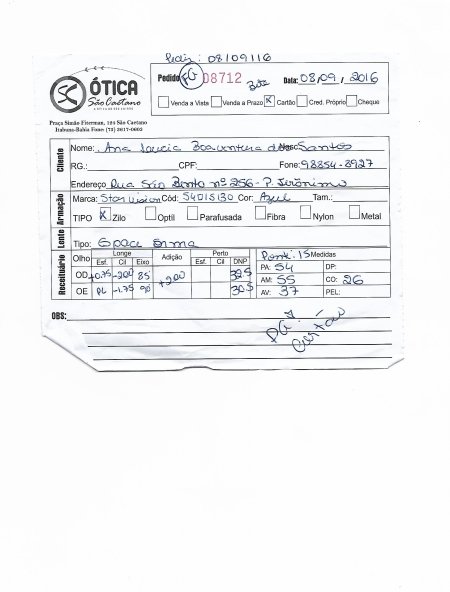 08/09/16
ÓTICA
São Caetano
Pedido 08712 Data: 08/09/2016
Venda a Vista Venda a Prazo X Cartão Cred. Próprio Cheque
Praça Simão Fiterman, 124 São Caetano
Itabuna-Bahia Fone: (73) 3617-0603
Cliente
Nome: Ana Lucia Boaventura dos Santos
RG.: CPF: Fone: 98854-8927
Endereço Rua São Bento nº 256 - P. Jerônimo
Armação
Marca: Star Vision Cód: 54015130 Cor: Azul Tam.:
TIPO X Zilo Optil Parafusada Fibra Nylon Metal
Lente
Tipo: Space Orma
Receituário
Olho Longe Adição Perto DNP Pont: 15 Medidas
Esf. Cil Eixo Esf. Cil
OD +0.75 -2.00 85 +2.00 32.5 PA: 54 DP:
AM: 55 CO: 26
OE PL -1.75 90 30.5 AV: 37 PEL:
OBS:
PG
Cartão